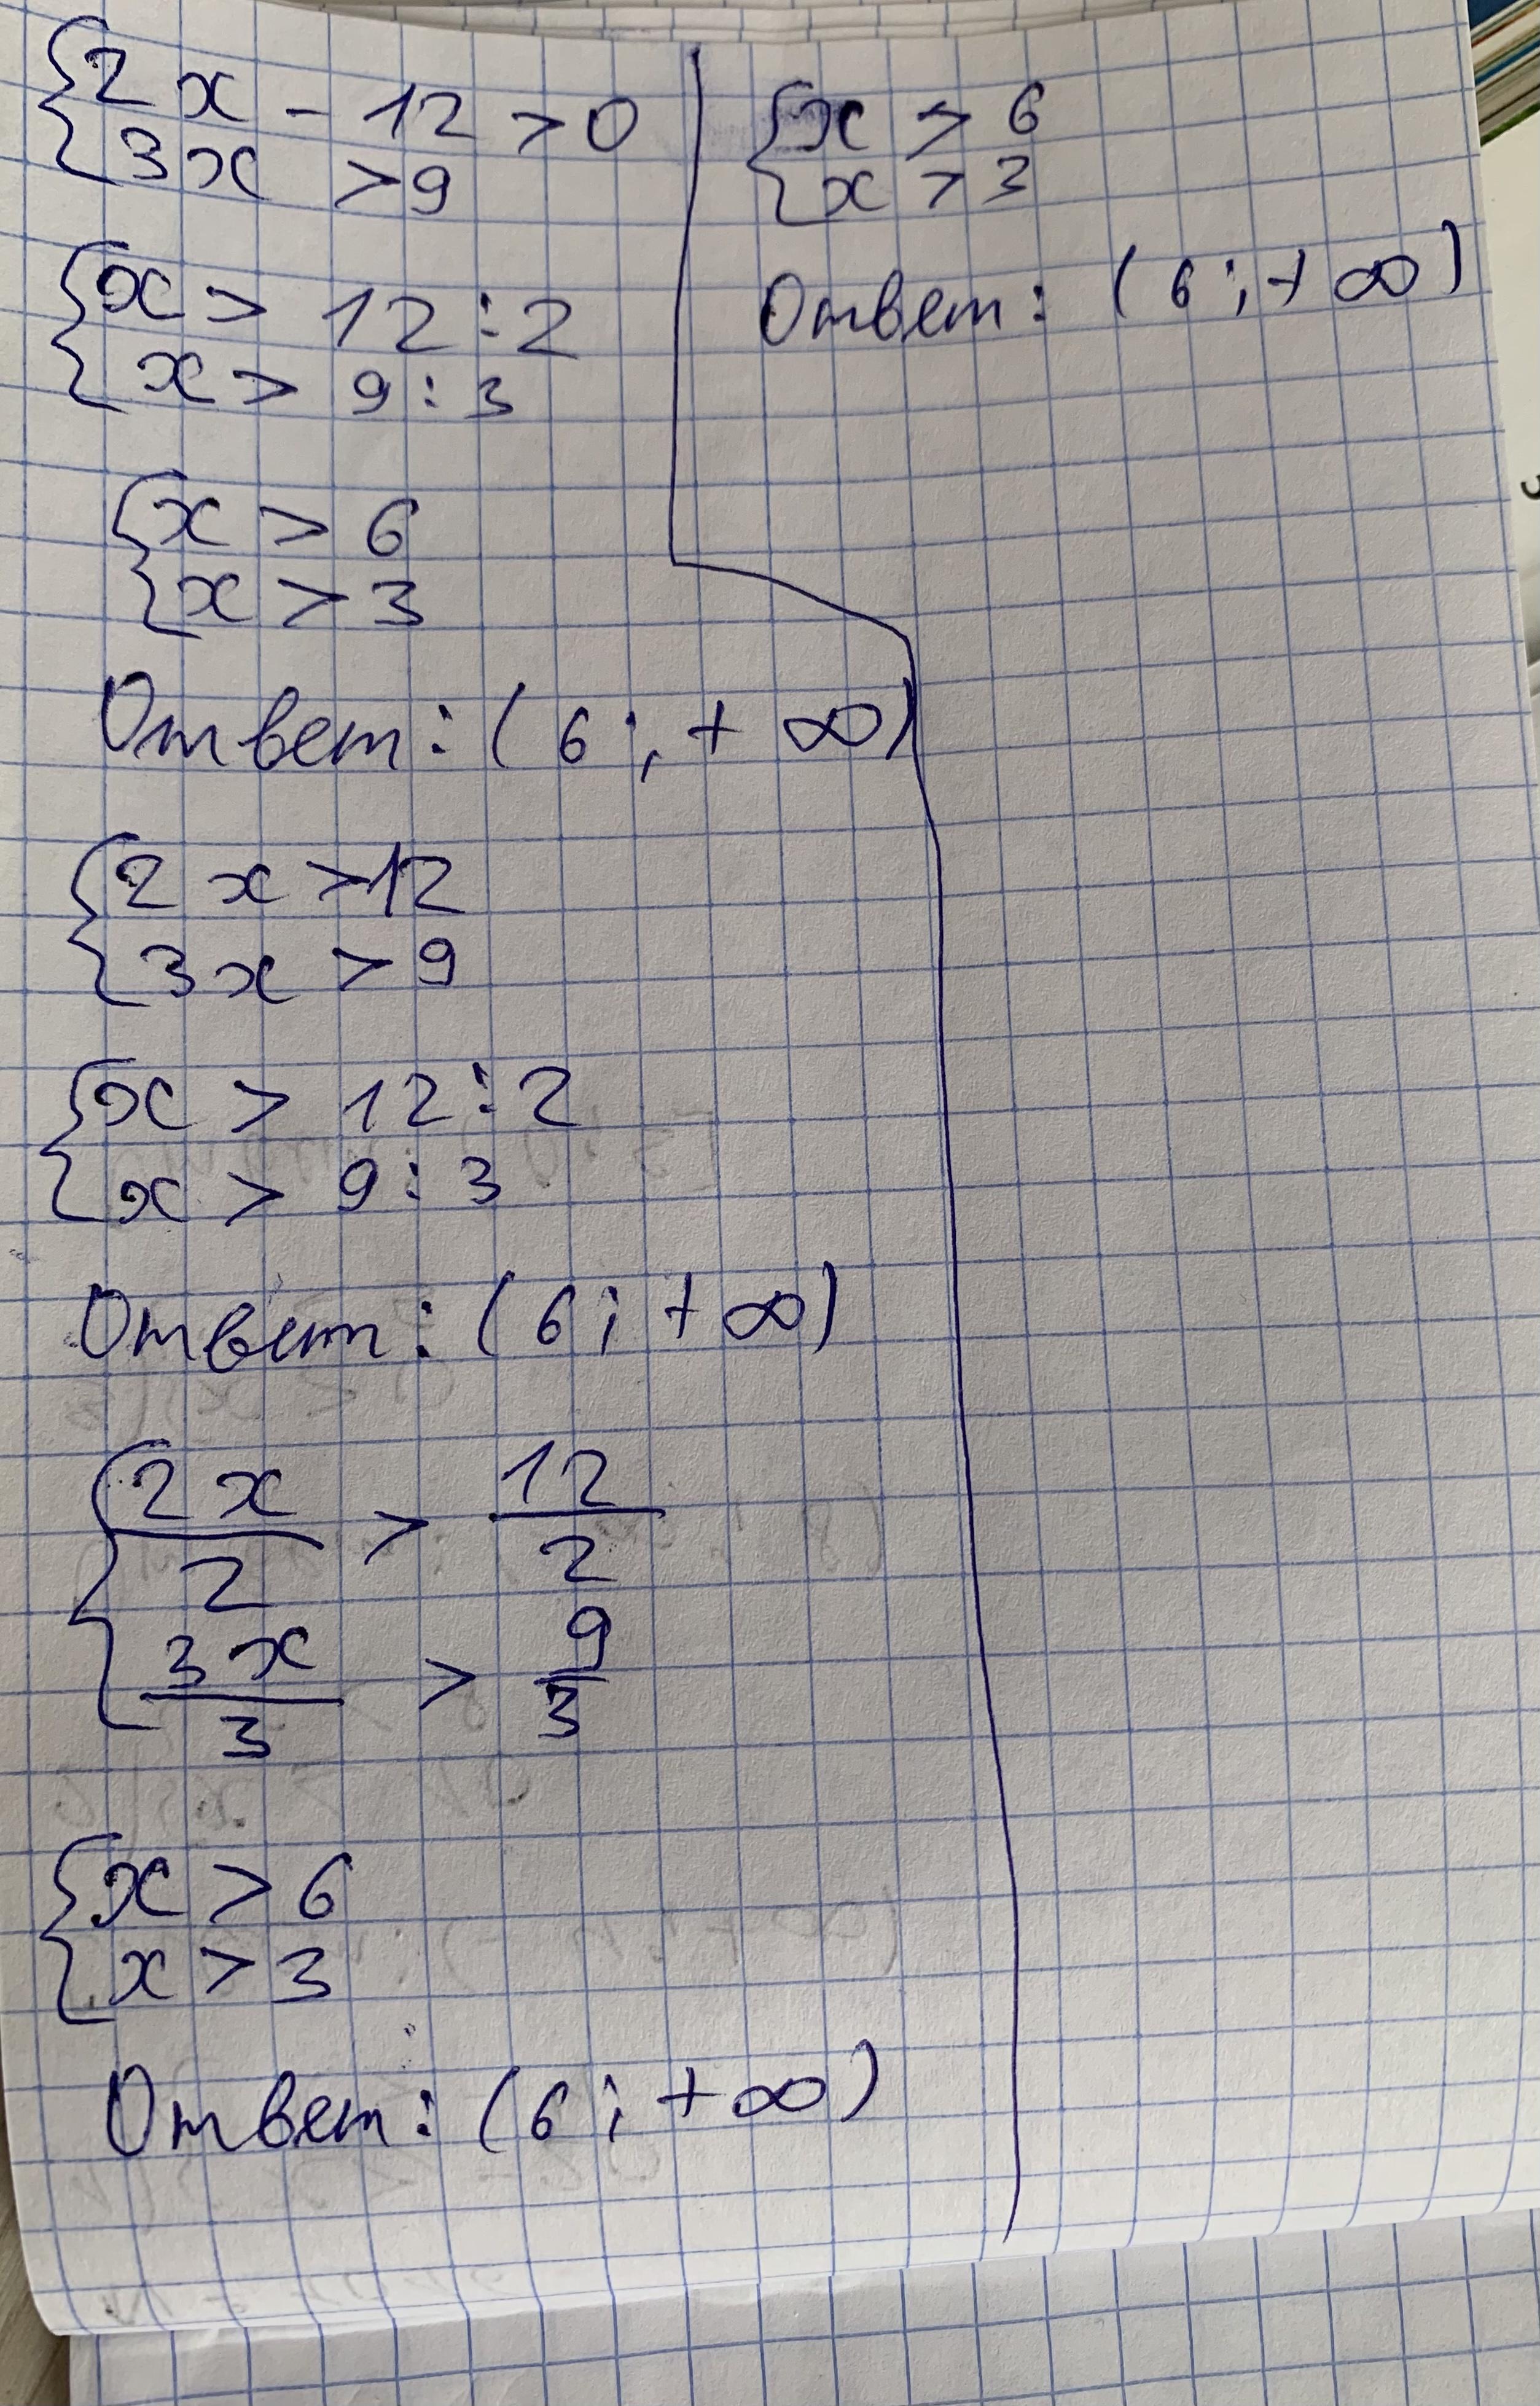 {2x - 12 > 0
3x > 9
{x > 12 : 2
x > 9 : 3
{x > 6
x > 3
Ответ: (6; + ∞)
{2x > 12
3x > 9
{x > 12 : 2
x > 9 : 3
Ответ: (6; + ∞)
{2x/2 > 12/2
3x/3 > 9/3
{x > 6
x > 3
Ответ: (6; + ∞)
{x > 6
x > 3
Ответ: (6; + ∞)